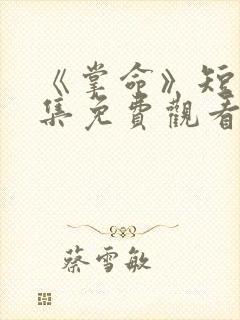 《掌命》短
集免費觀看
蔡雪敏